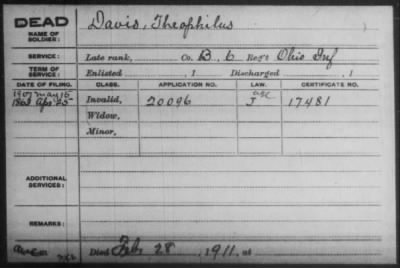 DEAD
NAME OF SOLDIER: Davis, Theophilus
SERVICE: Late rank, Co. B, 6 Reg't Ohio Inf
TERM OF SERVICE: Enlisted , 1 Discharged , 1
DATE OF FILING. CLASS. APPLICATION NO. LAW. CERTIFICATE NO.
1907 May 15
1863 Apr 25 Invalid, 20096 J 17481
Widow,
Minor,
ADDITIONAL SERVICES:
REMARKS:
Died Feb 28, 1911, at